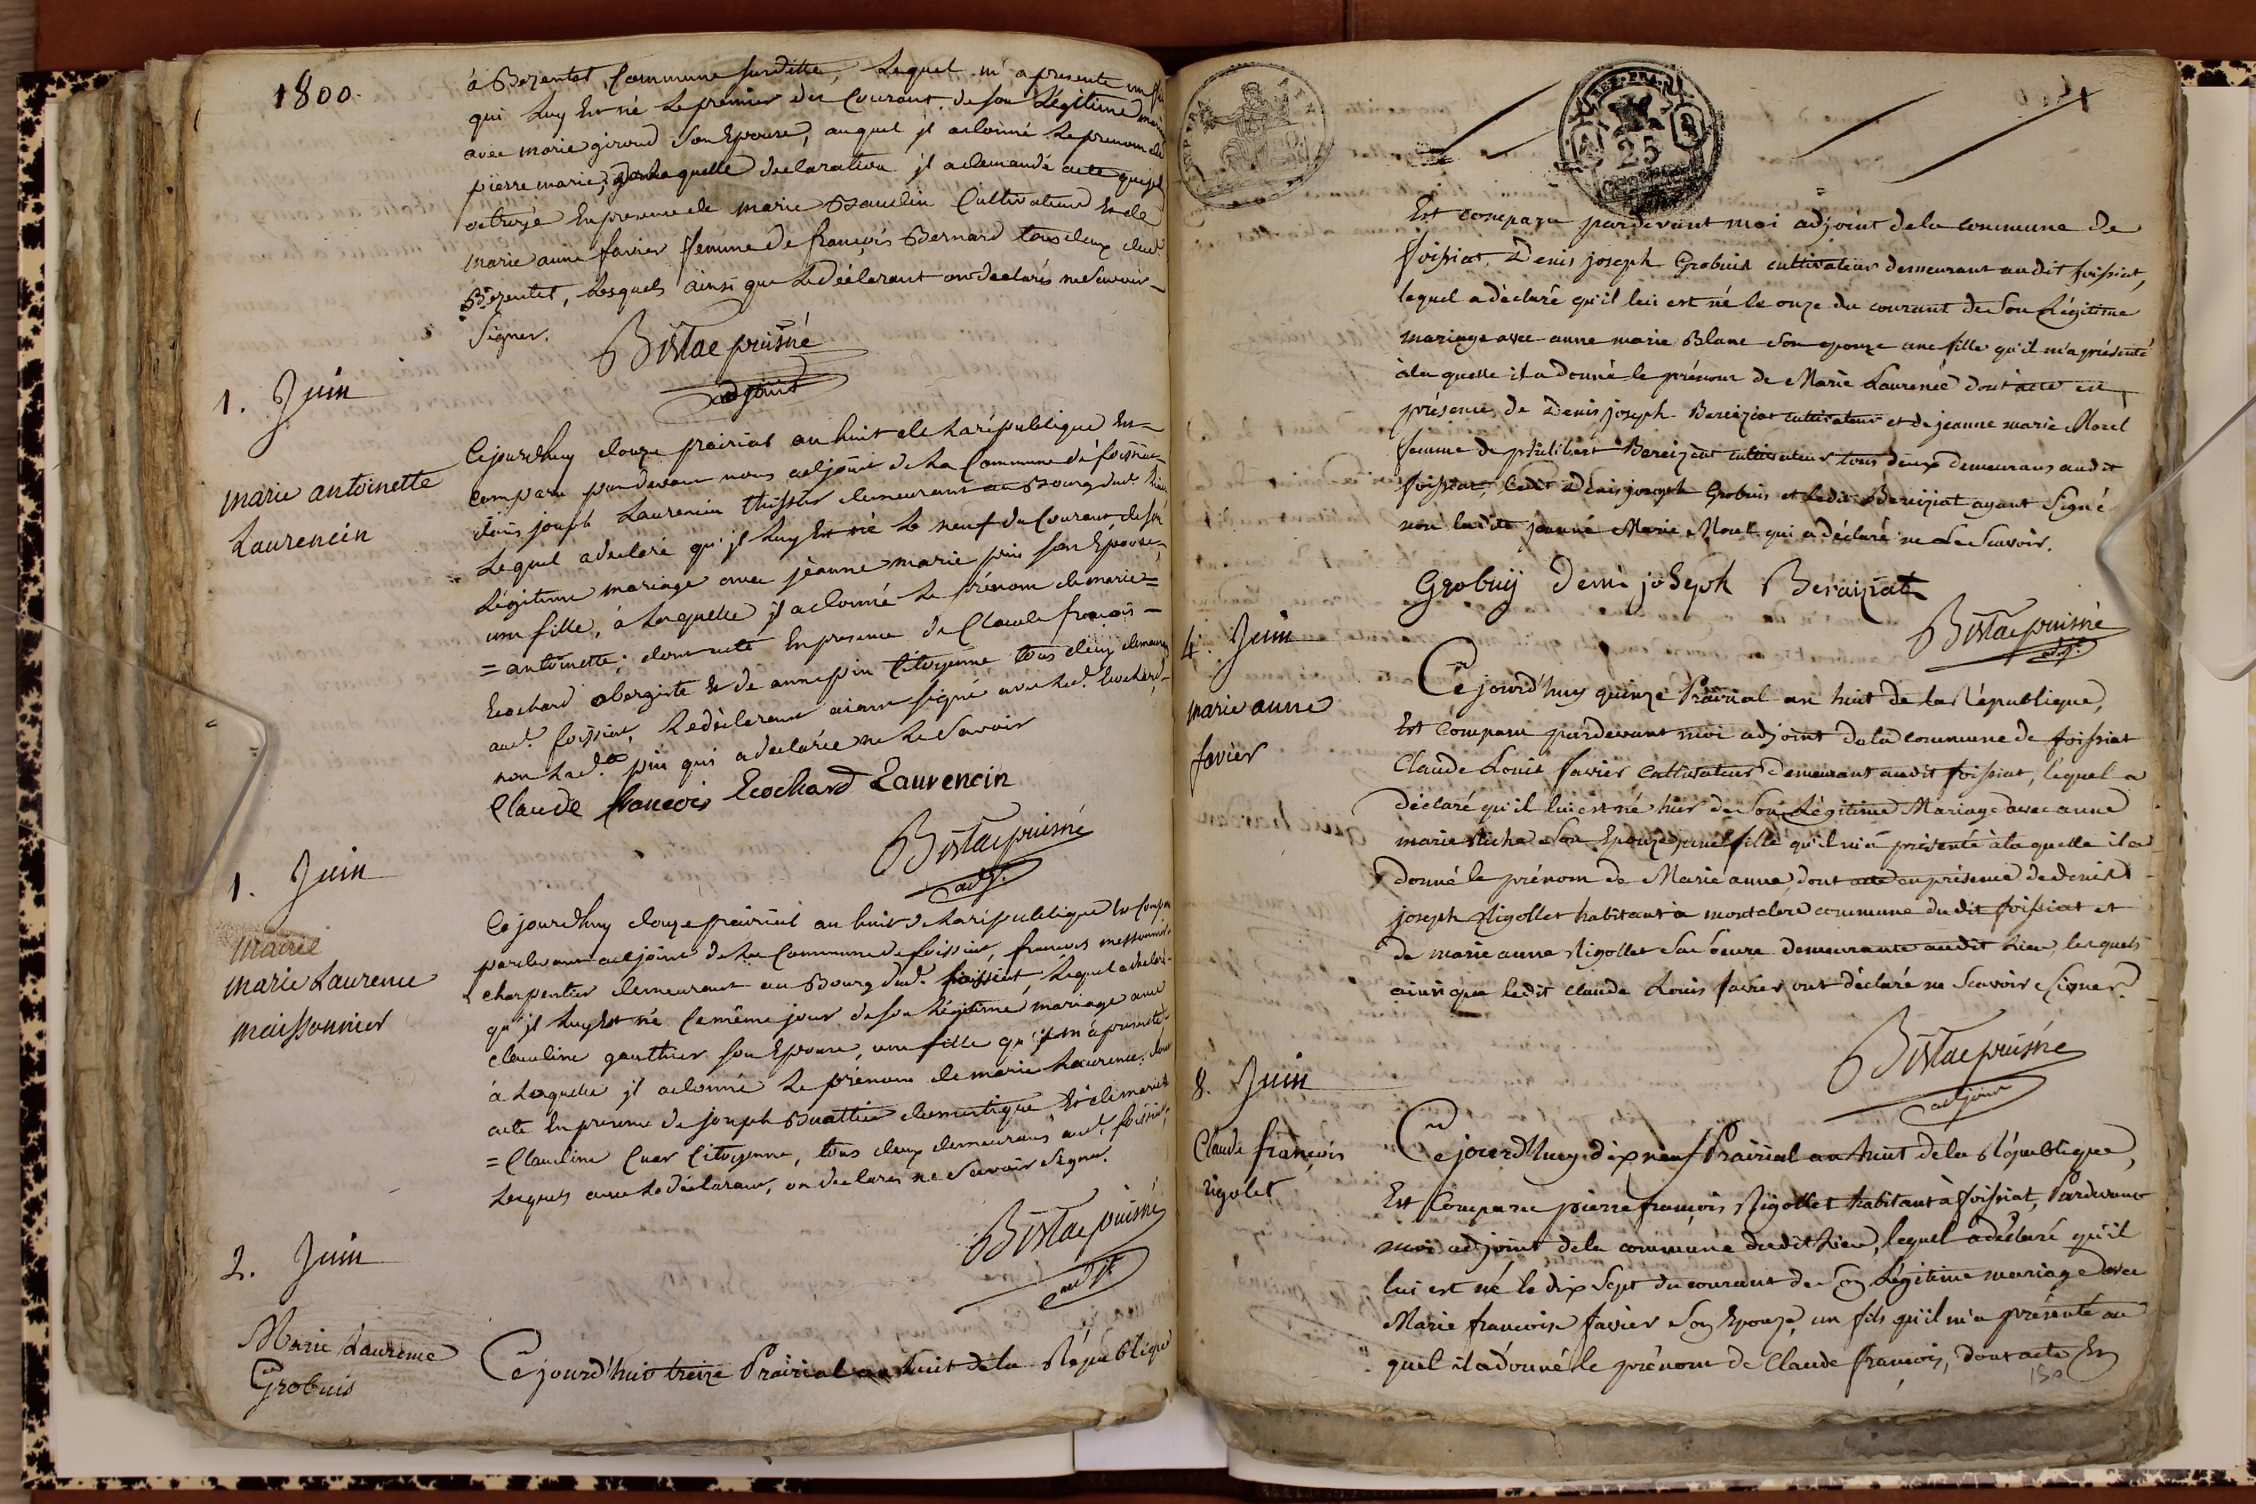 1800.
à Bezentet, Commune susditte, Lequel m'a présenté un fils
qui Luy Est né Le premier du Courant, de son Légitime mariage
avec marie giroud son Epouse, auquel il a donné Le prenom de
pierre marie; de Laquelle declaration il a demandé acte que j'ai
octroyé En presence de marie Baudin Cultivateur Et de
marie anne favier femme de françois Bernard tous deux dud.
Bezentet, Lesquels ainsi que Le déclarant ont declarés ne Savoir
Signer.
Bistac puisné
adjoint
1. Juin
marie antoinette
Laurencin
Cejourdhuy douze prairial an huit de La république Est
comparu pardevant nous adjoint de La Commune de foissiat
denis joseph Laurencin tissier demeurant au Bourg dud. Lieu
Lequel a declaré qu'il Luy Est né Le neuf du Courant de son
Légitime mariage avec jeanne marie pin son Epouse,
une fille, à Laquelle il a donné Le prénom de marie =
= antoinette; dont acte En presence de Claude françois
Ecochard obergiste Et de anne pin Citoyenne tous deux demeurans
aud. foissiat, Le déclarant aiant signé avec Led. Ecochard
non Lad.te pin qui a declarée ne Le Savoir
Claude francois Ecochard Laurencin
Bistac puisné
adj.t
1. Juin
marie
marie Laurence
maissonnier
Cejourdhuy douze prairial an huit de La république Est Comparu
pardevant adjoint de La Commune de foissiat, francois messonnier
charpentier demeurant au Bourg dud. foissiat, Lequel a declaré
qu'il Luy Est né Ce même jour de son Légitime mariage avec
claudine gauthier son Epouse, une fille qu'il m'a présenté
à Laquelle il a donné Le prénom de marie Laurence, dont
acte En presence de joseph Buathier domestique, Et de marie
= Claudine Cuer Citoyenne, tous deux demeurans aud. foissiat,
Lesquels avec Le déclarant, on declarés ne Savoir Signer.
Bistac puisné
adj.t
2. Juin
Marie Laurence
Grobuis
Ce jourd'hui treize Prairial an huit de la République
REP. FRA.
25
Est comparu pardevant moi adjoint de la commune de
foissiat Denis joseph Grobuis cultivateur demeurant audit foissiat,
lequel a déclaré qu'il lui est né le onze du courant de Son Légitime
mariage avec anne marie Blanc Son epouze une fille qu'il m'a présenté
à la quelle il a donné le prénom de Marie Laurence dont acte en
présence de Denis joseph Bereiziat cultivateur et de jeanne marie Morel
femme de philibert Bereiziat cultivateur tous deux demeurans audit
foissiat, ledit Denis joseph Grobuis et ledit Bereiziat ayant Signé
non ladite jeanne Marie Morel qui a déclaré ne Le Scavoir.
Grobuij deni joseph Beraiziat
Bistac puisné
adj.t
4. Juin
marie anne
favier
Ce jourd'huy quinze Prairial an huit de la République,
Est Comparu pardevant moi adjoint de la commune de foissiat
Claude Louis favier Cultivateur demeurant audit foissiat, lequel a
déclaré qu'il lui est né hier de Son Légitime Mariage avec anne
marie Son Epouze une fille qu'il m'a présenté à la quelle il a
donné le prénom de Marie anne, dont acte en présence de denis
joseph Rigollet habitant a montclerc commune du dit foissiat et
de marie anne Rigollet Sa Seure demeurante audit Lieu, les quels
ainsi que ledit claude Louis favier ont déclaré ne Scavoir Signer.
Bistac puisné
adjoint
8. Juin
Claude françois
rigolet
Ce jourd'huy dix neuf Prairial an huit de la République,
Est Comparu pierre françois Rigollet habitant à foissiat, Pardevant
moi adjoint de la commune dudit Lieu, lequel a déclaré qu'il
lui est né le dix Sept du courant de Son Légitime mariage avec
Marie francoise favier Son Epouze, un fils qu'il m'a présenté au
quel il a donné le prénom de Claude françois, dont acte En
150